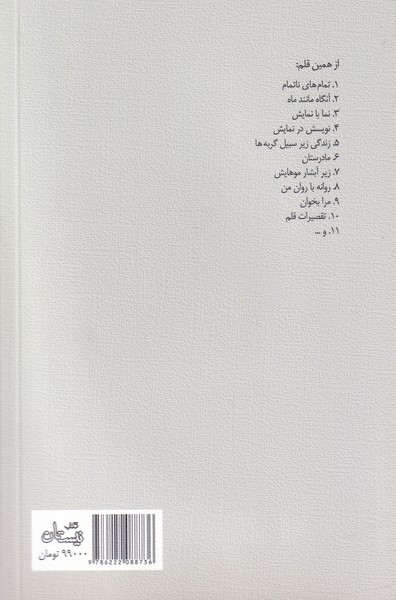 از همین قلم:
۱. تمام‌های ناتمام
۲. آنگاه مانند ماه
۳. نما با نمایش
۴. نویسش در نمایش
۵. زندگی زیر سبیل گربه‌ها
۶. مادرستان
۷. زیر آبشار موهایش
۸. روانه با روان من
۹. مرا بخوان
۱۰. تقصیرات قلم
۱۱. و ...
کتاب نیستان
۹۹۰۰۰ تومان
9 786222 088736